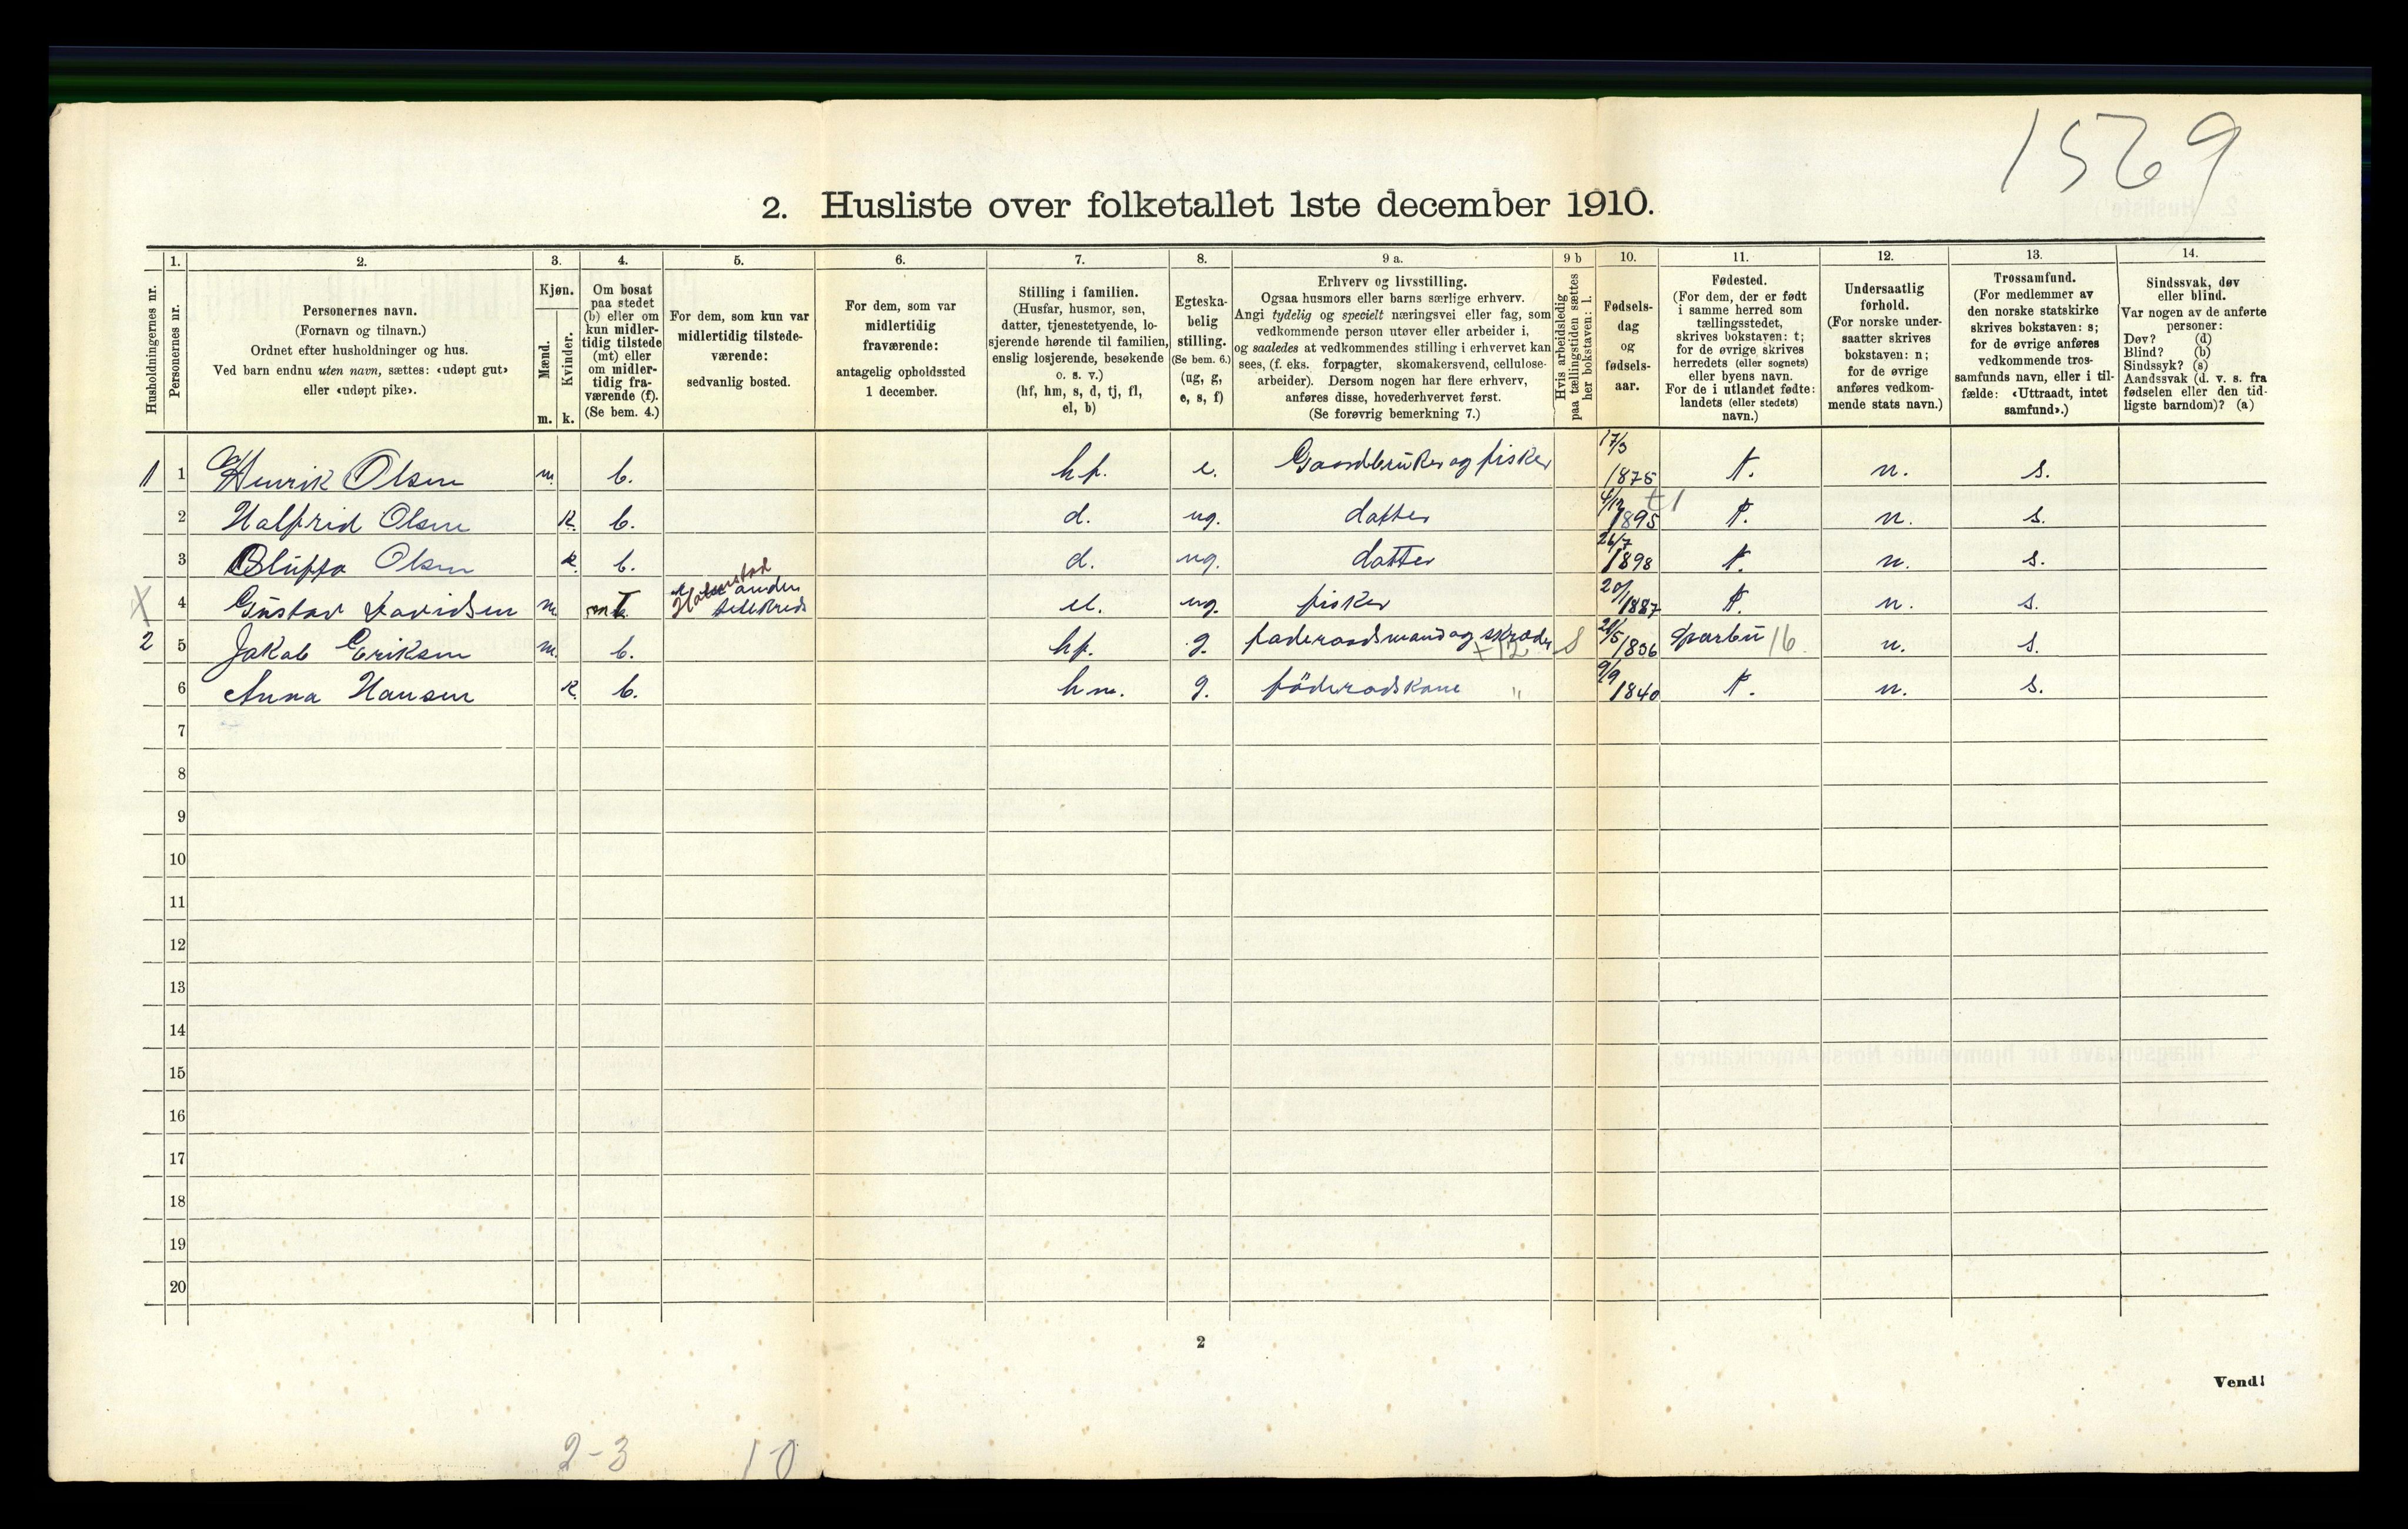 1569
2. Husliste over folketallet 1ste december 1910.
Husholdningernes nr.
1.
Personernes nr.
2.
Personernes navn.
(Fornavn og tilnavn.)
Ordnet efter husholdninger og hus.
Ved barn endnu uten navn, sættes: «udøpt gut»
eller «udøpt pike».
3.
Kjøn.
Mænd.
Kvinder.
m. k.
4.
Om bosat
paa stedet
(b) eller om
kun midler-
tidig tilstede
(mt) eller
om midler-
tidig fra-
værende (f).
(Se bem. 4.)
5.
For dem, som kun var
midlertidig tilstede-
værende:
sedvanlig bosted.
6.
For dem, som var
midlertidig
fraværende:
antagelig opholdssted
1 december.
7.
Stilling i familien.
(Husfar, husmor, søn,
datter, tjenestetyende, lo-
sjerende hørende til familien,
enslig losjerende, besøkende
o. s. v.)
(hf, hm, s, d, tj, fl,
el, b)
8.
Egteska-
belig
stilling.
(Se bem. 6.)
(ug, g,
e, s, f)
9 a.
Erhverv og livsstilling.
Ogsaa husmors eller barns særlige erhverv.
Angi tydelig og specielt næringsvei eller fag, som
vedkommende person utøver eller arbeider i,
og saaledes at vedkommendes stilling i erhvervet kan
sees, (f. eks. forpagter, skomakersvend, cellulose-
arbeider). Dersom nogen har flere erhverv,
anføres disse, hovederhvervet først.
(Se forøvrig bemerkning 7.)
9 b
Hvis arbeidsledig
paa tællingstiden sættes
her bokstaven: l.
10.
Fødsels-
dag
og
fødsels-
aar.
11.
Fødested.
(For dem, der er født
i samme herred som
tællingsstedet,
skrives bokstaven: t;
for de øvrige skrives
herredets (eller sognets)
eller byens navn.
For de i utlandet fødte:
landets (eller stedets)
navn.)
12.
Undersaatlig
forhold.
(For norske under-
saatter skrives
bokstaven: n;
for de øvrige
anføres vedkom-
mende stats navn.)
13.
Trossamfund.
(For medlemmer av
den norske statskirke
skrives bokstaven: s;
for de øvrige anføres
vedkommende tros-
samfunds navn, eller i til-
fælde: «Uttraadt, intet
samfund».)
14.
Sindssvak, døv
eller blind.
Var nogen av de anførte
personer:
Døv? (d)
Blind? (b)
Sindssyk? (s)
Aandssvak (d. v. s. fra
fødselen eller den tid-
ligste barndom)? (a)
1 1 Henrik Olsen m. b. hf. e. Gaardbruker og fisker 17/3 1875 t. n. s.
2 Halfrid Olsen k. b. d. ug. datter 4/12 1895 t. n. s.
3 Olsen k. b. d. ug. datter 26/7 1898 t. n. s.
X 4 Gustav Davidsen m. mt anden tellekreds el. ug. fisker 20/1 1887 t. n. s.
2 5 Jakob Eriksen m. b. hf. g. faderaadsmand og skræder +12 8 1836 Sparbu 16 n. s.
6 Anna Hansen k. b. hm. g. föderadskone " 9/9 1840 t. n. s.
7
8
9
10
11
12
13
14
15
16
17
18
19
20
2
Vend!
2-3 10